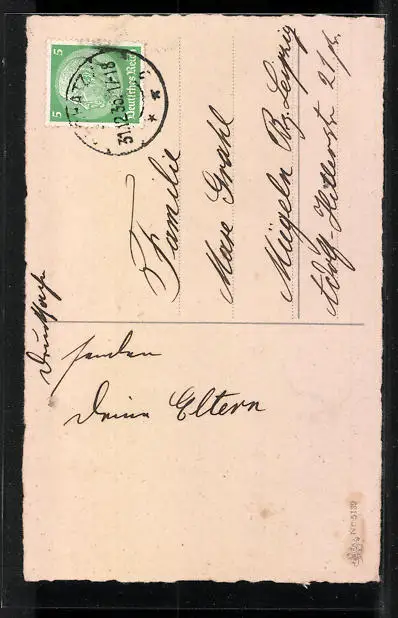 Drucksache
senden
Deine Eltern
5
Deutsches Reich
5
31.12.36.17-18
Familie
Max Grahl
Mügeln Bz. Leipzig
Adolf-Hitlerstr 21
Nr. 5139